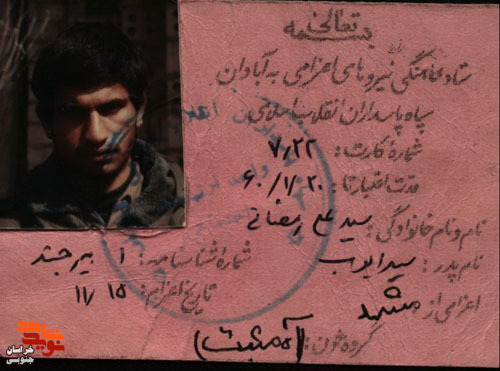 بسمه تعالی
ستاد هماهنگی نیروهای اعزامی به آبادان
سپاه پاسداران انقلاب اسلامی
شمارهٔ کارت: ۷۲۲
مدت اعتبار تا: ۶۰/۷/۳۰
نام و نام خانوادگی: سید علی رمضانی
نام پدر: سید ایوب شمارهٔ شناسنامه: ۱ بیرجند
اعزامی از: مشهد تاریخ اعزام: ۱۱/۱۵
گروه خون: (+A مثبت)
نوید شاهد
خراسان جنوبی